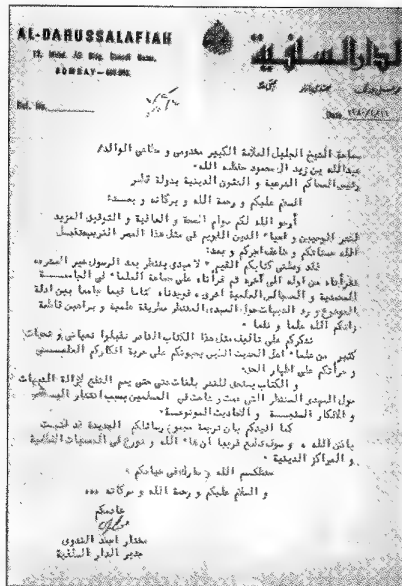 AL-DARUSSALAFIAH
الدار السلفية
BOMBAY
Ref. No.
Date
سماحة الشيخ الجليل العلامة الكبير مخدومي و حنامي الوالد/
عبدالله بن زيد آل محمود حفظه الله
رئيس المحاكم الشرعية و الشئون الدينية بدولة قطر
السلام عليكم و رحمة الله و بركاته و بعد:
أرجو الله لكم دوام الصحة و العافية و التوفيق المزيد
لنشر التوحيد و احياء الدين القويم في مثل هذا العصر الغريب تقبل
الله حسناتكم و ضاعف أجركم و بعد:
فقد وصلني كتابكم القيم "لا مهدي ينتظر بعد الرسول خير البشر"
فقرأناه من أوله الى آخره ثم قرأناه على جماعة العلماء في الجامعة
المحمدية و المجالس العلمية أخرى، فوجدناه كتابا قيما جامعا بين أدلة
الموضوع و رد الشبهات حول المهدي المنتظر بطريقة علمية و براهين قاطعة
زادكم الله علما و نفعا
نشكركم على تأليف مثل هذا الكتاب النادر تقبلوا تحياتي و تحيات
كثير من علماء أهل الحديث الذين يحبونكم على حرية أفكاركم
و جرأتكم على اظهار الحق
و الكتاب يستحق للنشر بلغات شتى حتى يعم النفع لازالة الشبهات
حول المهدي المنتظر التي عمت و شاعت في المسلمين بسبب انتشار
و الأفكار و الأحاديث الموضوعة
كما أفيدكم بأن ترجمة مجموع رسائلكم الجديدة قد
باذن الله، و سوف تطبع قريبا ان شاء الله و توزع في الجمعيات
و المراكز الدينية
حفظكم الله و بارك في حياتكم
و السلام عليكم و رحمة الله و بركاته
خادمكم
مختار أحمد الندوي
مدير الدار السلفية